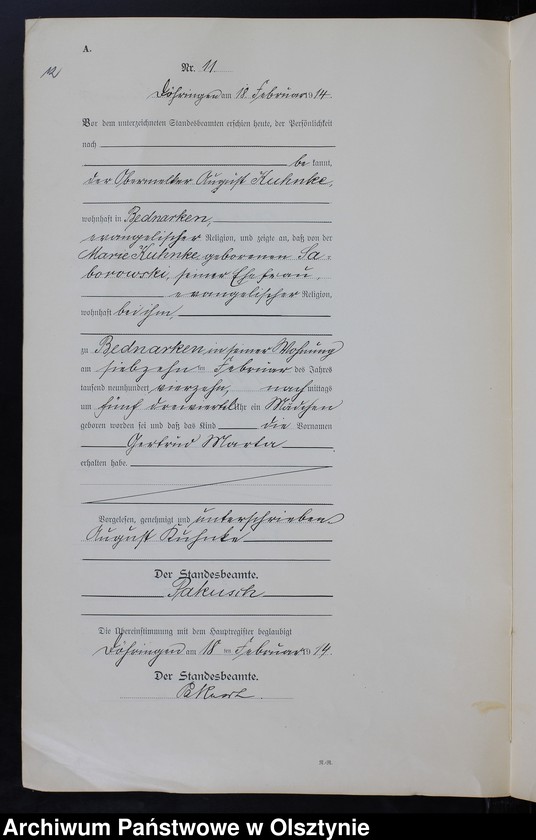 A.
12
Nr. 11
Döhringen am 18. Februar 1914.
Vor dem unterzeichneten Standesbeamten erschien heute, der Persönlichkeit
nach
be kannt,
der Obermelker August Kuhnke,
wohnhaft in Bednarken,
evangelischer Religion, und zeigte an, daß von der
Marie Kuhnke, geborenen Sa-
borowski, seiner Ehefrau,
evangelischer Religion,
wohnhaft bei ihm,
zu Bednarken, in seiner Wohnung
am siebzehn ten Februar des Jahres
tausend neunhundert vierzehn, nach mittags
um fünf dreiviertel Uhr ein Mädchen
geboren worden sei und daß das Kind die Vornamen
Gertrud Marta
erhalten habe.
Vorgelesen, genehmigt und unterschrieben
August Kuhnke
Der Standesbeamte.
Die Übereinstimmung mit dem Hauptregister beglaubigt
Döhringen am 18 ten Februar 1914.
Der Standesbeamte.
Archiwum Państwowe w Olsztynie